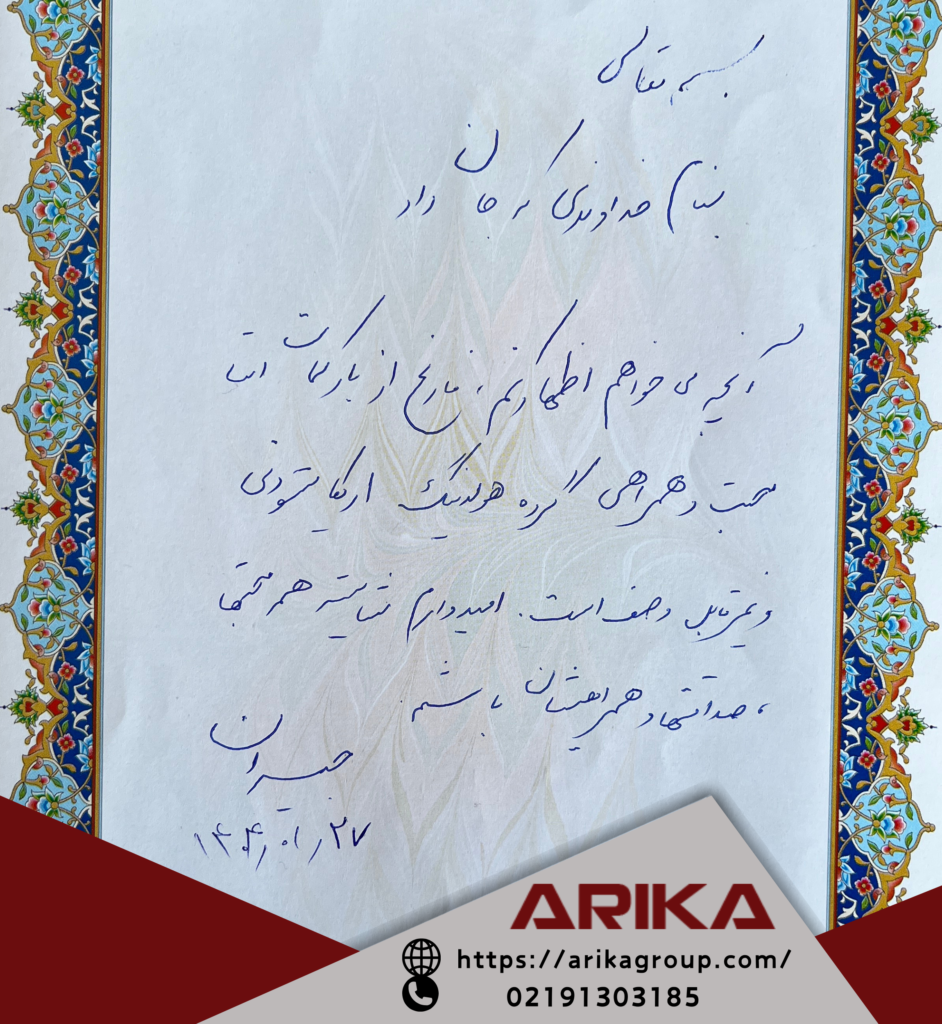 بسمه تعالی
بنام خداوندی که جان داد
آنچه می خواهم اظهار کنم، فارغ از بار کلمات است
محبت و همراهی گروه هولدینگ اریکا ستودنی
و غیر قابل وصف است. امیدوارم شایسته همه محبتها
، صداقتها و همراهیشان باشم.
جیران
۱۴۰۴/۰۱/۲۷
ARIKA
https://arikagroup.com/
02191303185